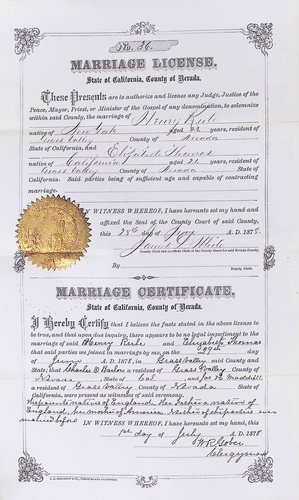 No. 36.
MARRIAGE LICENSE.
State of California, County of Nevada.
These Presents are to authorize and license any Judge, Justice of the
Peace, Mayor, Priest, or Minister of the Gospel of any denomination, to solemnize
within said County, the marriage of Henry
native of New York aged 22 years, resident of
Grass Valley County of Nevada
State of California, and Elizabeth Thomas
native of California aged 21 years, resident of
Grass Valley County of Nevada State of
California. Said parties being of sufficient age and capable of contracting
marriage.
IN WITNESS WHEREOF, I have hereunto set my hand and
affixed the Seal of the County Court of said County,
this 28th day of A. D. 1878.
James D.
County Clerk and ex-officio Clerk of the County Court for said Nevada County.
By
Deputy Clerk.
MARRIAGE CERTIFICATE.
State of California, County of Nevada.
I Hereby Certify that I believe the facts stated in the above license to
be true, and that upon due inquiry, there appears to be no legal impediment to the
marriage of said Henry and Elizabeth Thomas
that said parties were joined in marriage by me, on the 29th
day of A. D. 1878, in Grass Valley said County and
State; that Charles D. a resident of Grass Valley
Nevada, Cal and
a resident of Grass Valley County of Nevada State of
California, were present as witnesses of said ceremony.
native of England. Her father a native of
England, her mother of America. Neither of the parties ever
married before IN WITNESS WHEREOF, I have hereunto set my hand, this
1st day of July A. D. 1878
Clergyman